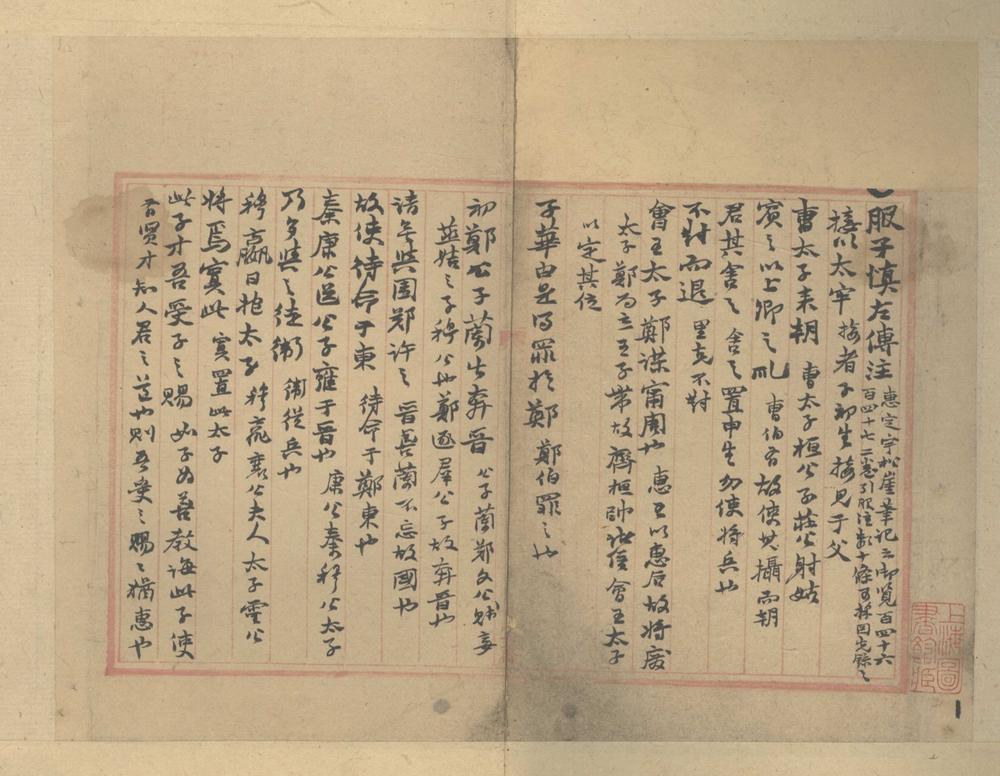 服子慎左傳注
惠定宇松崖筆記云御覽百四十六
百四十七二卷引服注數十條可採因先錄之
接以太牢 接者子初生接見于父
曹太子來朝 曹太子桓公子莊公射姑
賓之以上卿之礼 曹伯有故使其攝而朝
君其舍之 舍之置申生勿使將兵也
不対而退 里克不対
會王太子鄭謀甯周也 惠王以惠后故將廢
太子鄭而立王子帶故齊桓帥諸侯會王太子
以定其位
子華由是得罪於鄭 鄭伯罪之也
初鄭公子蘭出奔晉 公子蘭鄭文公賤妾
燕姞之子穆公也鄭逐羣公子故奔晉也
請無與圍鄭許之 晉善蘭不忘故國也
故使待命于東 待命于鄭東也
秦康公送公子雍于晉也 康公秦穆公太子
乃多與之徒衛 衛從兵也
穆嬴日抱太子 穆嬴襄公夫人太子靈公
將焉寘此 寘置此太子
此子才吾受子之賜 如子如善教誨此子使
有賢才知人君之道也則吾受之賜賜猶惠也
上海圖書館藏
1